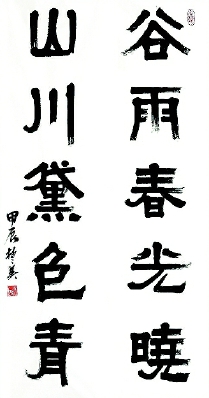 谷雨春光曉
山川黛色青
甲辰